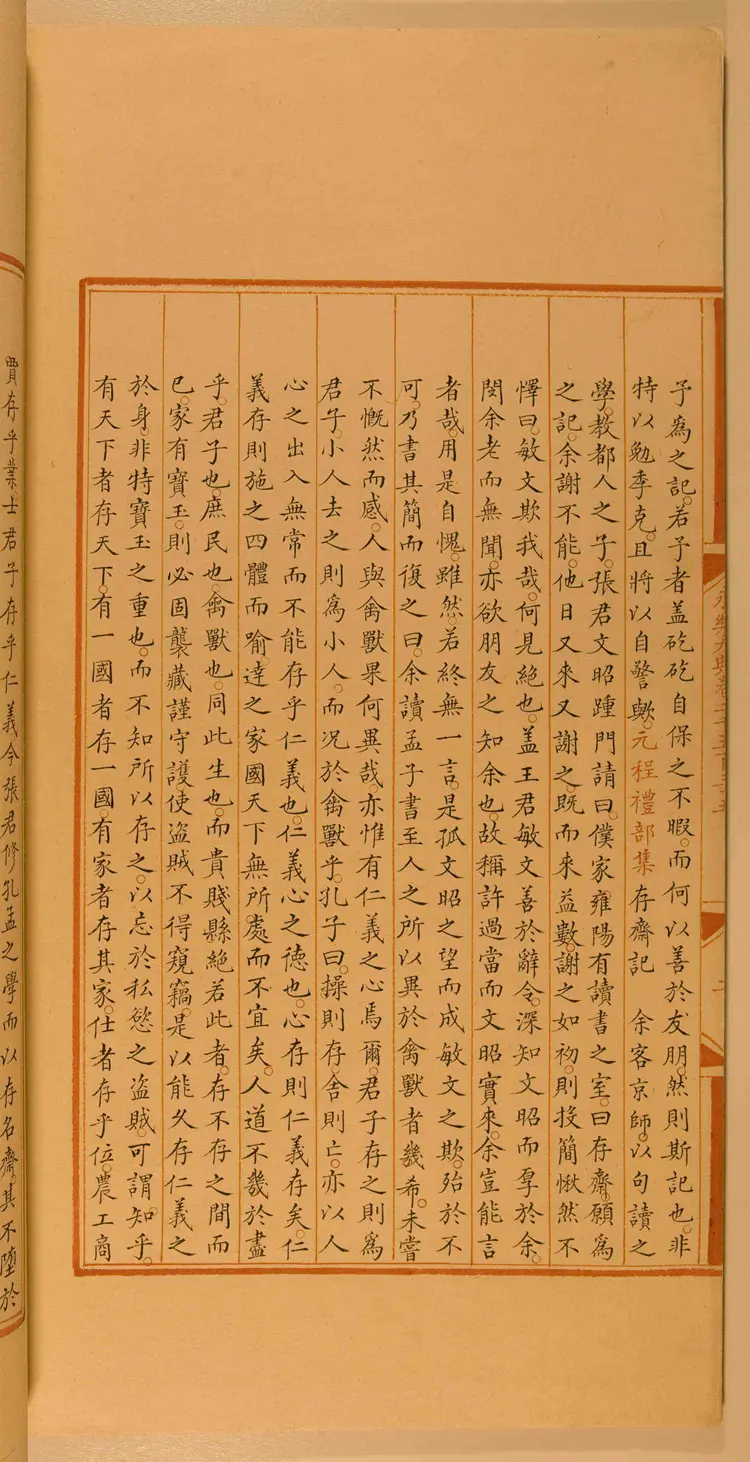 永樂大典卷二千五百三十五
二
予為之記。若予者盖矻矻自保之不暇。而何以善於友朋。然則斯記也。非
特以勉季克。且將以自警歟。元程禮部集存齋記　余客京師。以句讀之
學。教都人之子。張君文昭踵門請曰。僕家雍陽有讀書之室。曰存齋。願為
之記。余謝不能。他日又來又謝之。既而來益數。謝之如初。則投簡愀然不
懌曰。敏文欺我哉。何見絕也。盖王君敏文善於辭令。深知文昭而厚於余。
閔余老而無聞。亦欲朋友之知余也。故稱許過當而文昭實來。余豈能言
者哉。用是自愧。雖然。若終無一言。是孤文昭之望而成敏文之欺。殆於不
可。乃書其簡而復之曰。余讀孟子書至人之所以異於禽獸者幾希。未嘗
不慨然而感。人與禽獸果何異哉。亦惟有仁義之心焉爾。君子存之則為
君子。小人去之則為小人。而况於禽獸乎。孔子曰。操則存。舍則亡。亦以人
心之出入無常而不能存乎仁義也。仁義心之德也。心存則仁義存矣。仁
義存則施之四體而喻。達之家國天下無所處而不宜矣。人道不幾於盡
乎。君子也。庶民也。禽獸也。同此生也。而貴賤縣絕若此者。存不存之間而
已。家有寶玉。則必固襲藏謹守護。使盜賊不得窺竊。是以能久存仁義之
於身。非特寶玉之重也。而不知所以存之。以忘於私慾之盜賊。可謂知乎。
有天下者存天下。有一國者存一國。有家者存其家。仕者存乎位。農工商
賈存乎業。士君子存乎仁義今張君修孔孟之學而以存名齋。其不墮於